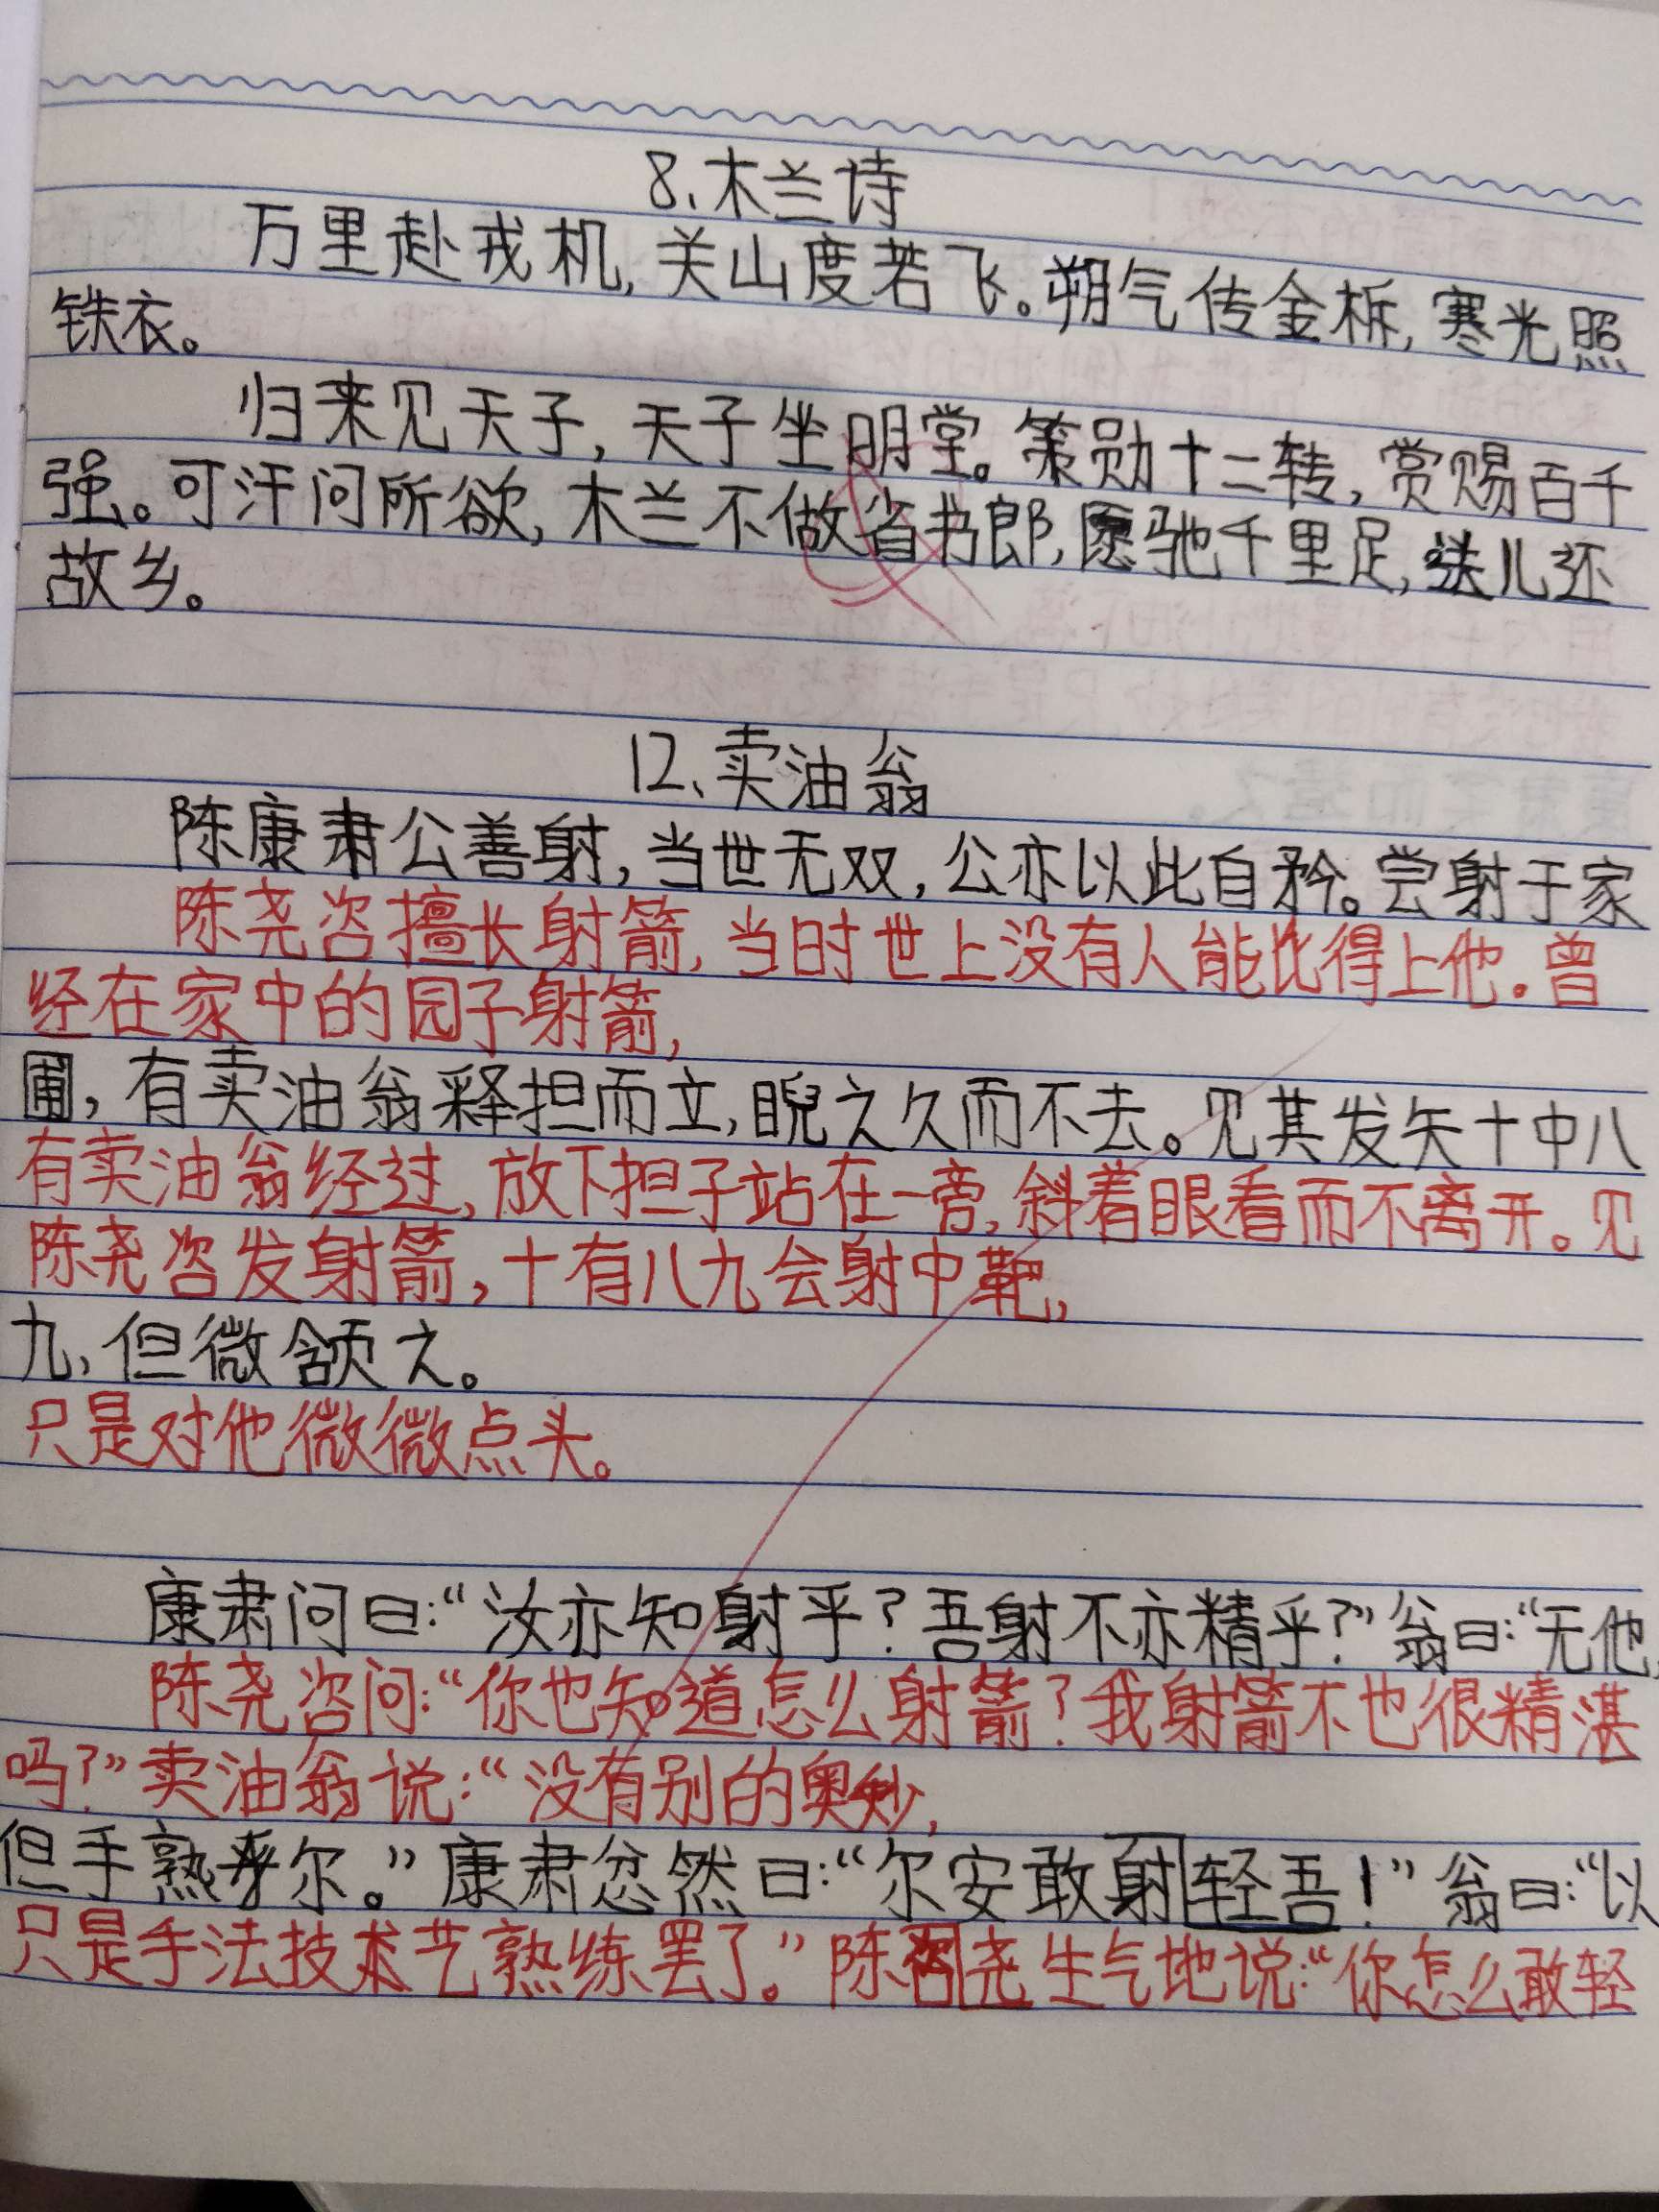 8、木兰诗
万里赴戎机,关山度若飞。朔气传金柝,寒光照
铁衣。
归来见天子,天子坐明堂。策勋十二转,赏赐百千
强。可汗问所欲,木兰不做省书郎,愿驰千里足,送儿还
故乡。
12、卖油翁
陈康肃公善射,当世无双,公亦以此自矜。尝射于家
陈尧咨擅长射箭,当时世上没有人能比得上他。曾
经在家中的园子射箭,
圃,有卖油翁释担而立,睨之久而不去。见其发矢十中八
有卖油翁经过,放下担子站在一旁,斜着眼看而不离开。见
陈尧咨发射箭,十有八九会射中靶,
九,但微颔之。
只是对他微微点头。
康肃问曰:“汝亦知射乎?吾射不亦精乎?”翁曰:“无他,
陈尧咨问:“你也知道怎么射箭?我射箭不也很精湛
吗?”卖油翁说:“没有别的奥妙,
但手熟尔。”康肃忿然曰:“尔安敢射轻吾!”翁曰:“以
只是手法技术艺熟练罢了。”陈咨尧生气地说:“你怎么敢轻